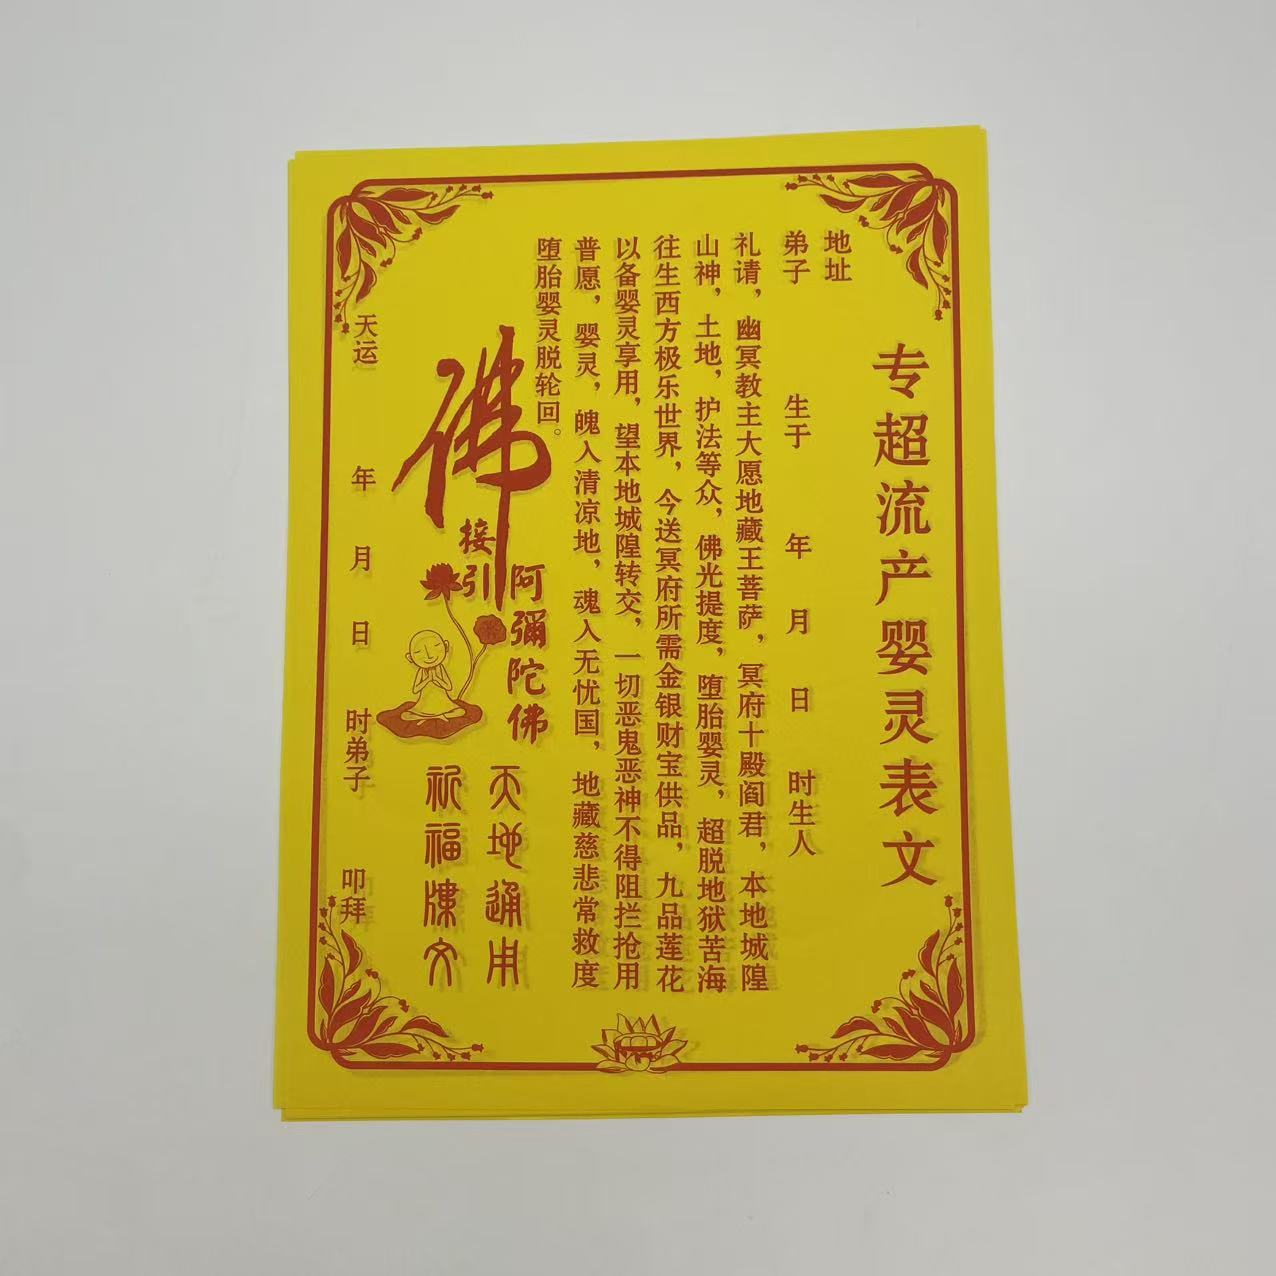 专超流产婴灵表文
地址
弟子 生于 年 月 日 时生人
礼请，幽冥教主大愿地藏王菩萨，冥府十殿阎君，本地城隍
山神，土地，护法等众，佛光提度，堕胎婴灵，超脱地狱苦海
往生西方极乐世界，今送冥府所需金银财宝供品，九品莲花
以备婴灵享用，望本地城隍转交，一切恶鬼恶神不得阻拦抢用
普愿，婴灵，魄入清凉地，魂入无忧国，地藏慈悲常救度
堕胎婴灵脱轮回。
佛
阿彌陀佛
接引
天地通用
祈福陳文
天运 年 月 日 时弟子 叩拜